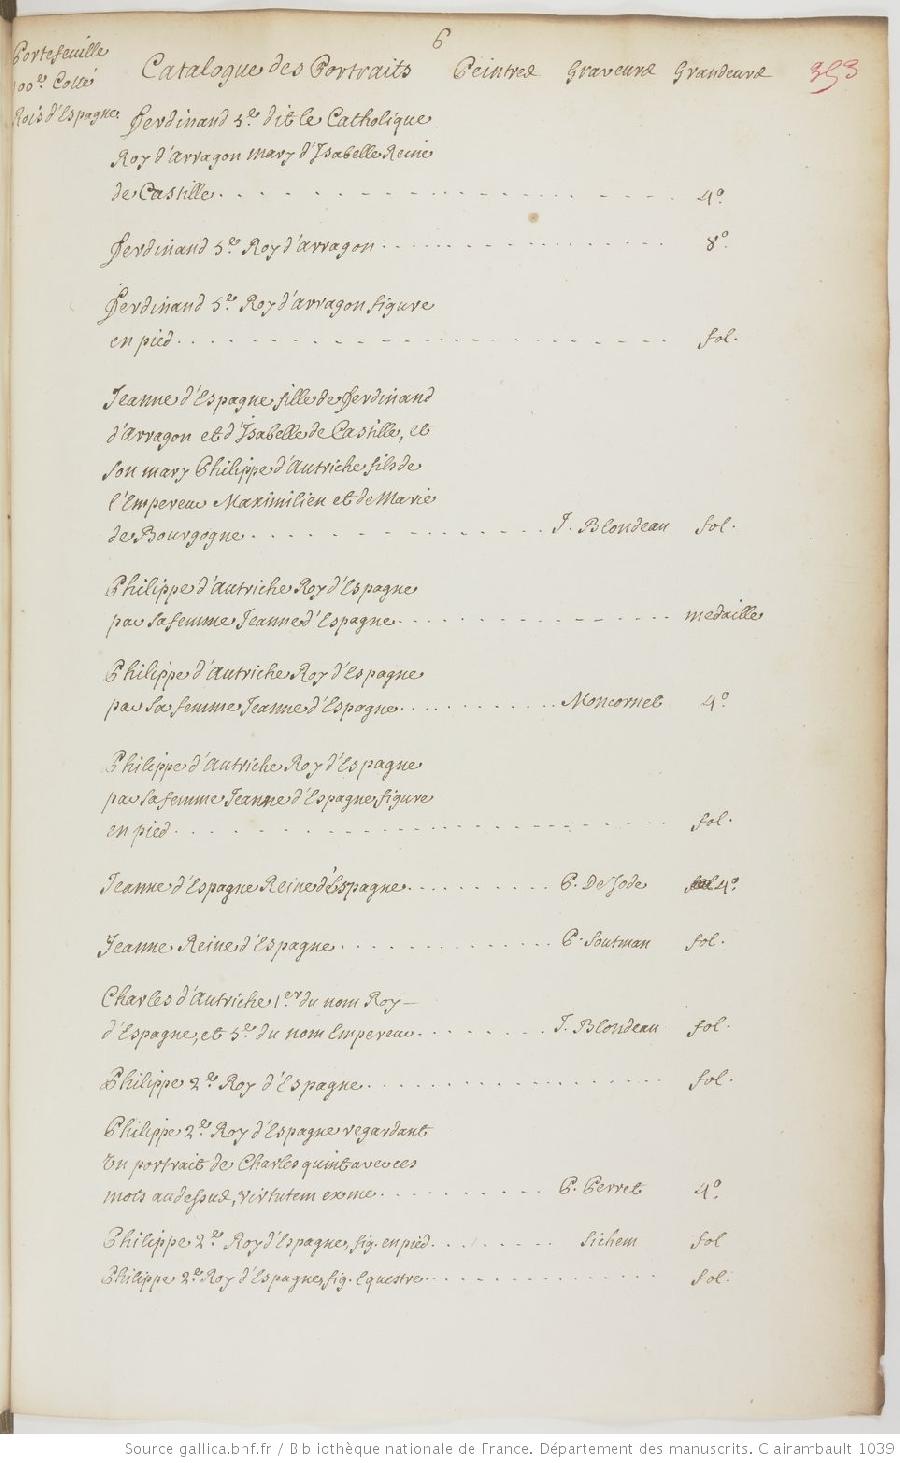 6
Portefeuille
100e Cotté
Rois d'Espagne
Catalogue des Portraits Peintres Graveurs Grandeurs 353
Ferdinand 5e dit le Catholique
Roy d'Arragon mary d'Isabelle Reine
de Castille 4o
Ferdinand 5e Roy d'Arragon 8o
Ferdinand 5e Roy d'Arragon figure
en pied fol.
Jeanne d'Espagne fille de Ferdinand
d'Arragon et d'Isabelle de Castille, et
son mary Philippe d'Autriche fils de
l'Empereur Maximilien et de Marie
de Bourgogne J. Blondeau fol.
Philippe d'Autriche Roy d'Espagne
par sa femme Jeanne d'Espagne medaille
Philippe d'Autriche Roy d'Espagne
par sa femme Jeanne d'Espagne Moncornet 4o
Philippe d'Autriche Roy d'Espagne
par sa femme Jeanne d'Espagne, figure
en pied fol.
Jeanne d'Espagne Reine d'Espagne P. De Jode 4o
Jeanne Reine d'Espagne P. Soutman fol.
Charles d'Autriche 1er du nom Roy
d'Espagne, et 5e du nom Empereur J. Blondeau fol.
Philippe 2e Roy d'Espagne fol.
Philippe 2e Roy d'Espagne regardant
un portrait de Charles quint avec ces
mots au dessus, virtutem ex me P. Perret 4o
Philippe 2e Roy d'Espagne, fig. en pied Sichem fol
Philippe 2e Roy d'Espagne, fig. Equestre fol.
Source gallica.bnf.fr / Bibliothèque nationale de France. Département des manuscrits. Clairambault 1039